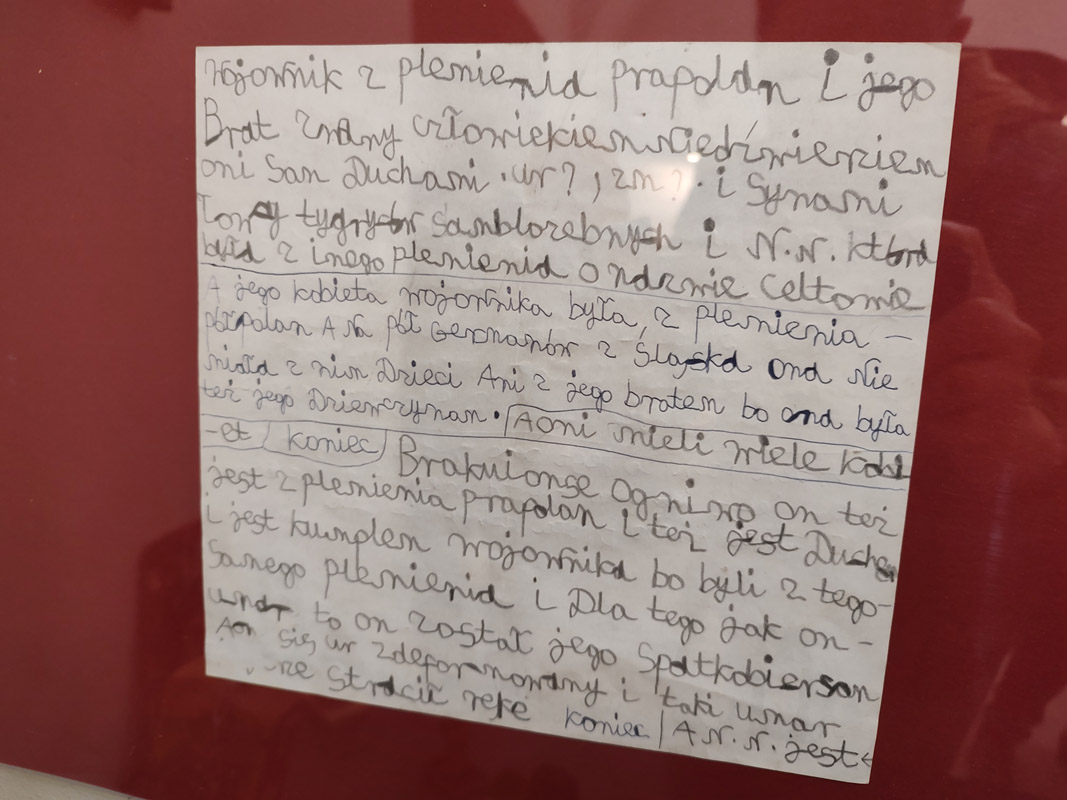 wojownik z plemienia prapolan i jego
Brat znany człowiekiem niedźwieziem
oni San Duchami . ur? , zm ? . i Synami
tygrysów samblozebnych i N.N. która
była z inego plemienia o nazwie Celtowie
A jego kobieta wojownika była, z plemienia –
półpolan A na pół Germanów z Śląska ona nie
miała z nim Dzieci Ani z jego bratem bo ona była
też jego Dziewczynan . Aoni mieli wiele kobi
-et koniec Brakuionse Ogniwo on też
jest z plemienia prapolan i też jest Duchem
i jest kumplem wojownika bo byli z tego-
samego plemienia i Dla tego jak on –
umar to on został jego Spatkobiersom
Aon się ur zdeformowany i taki umar
Stracił reke koniec A N.N. jest